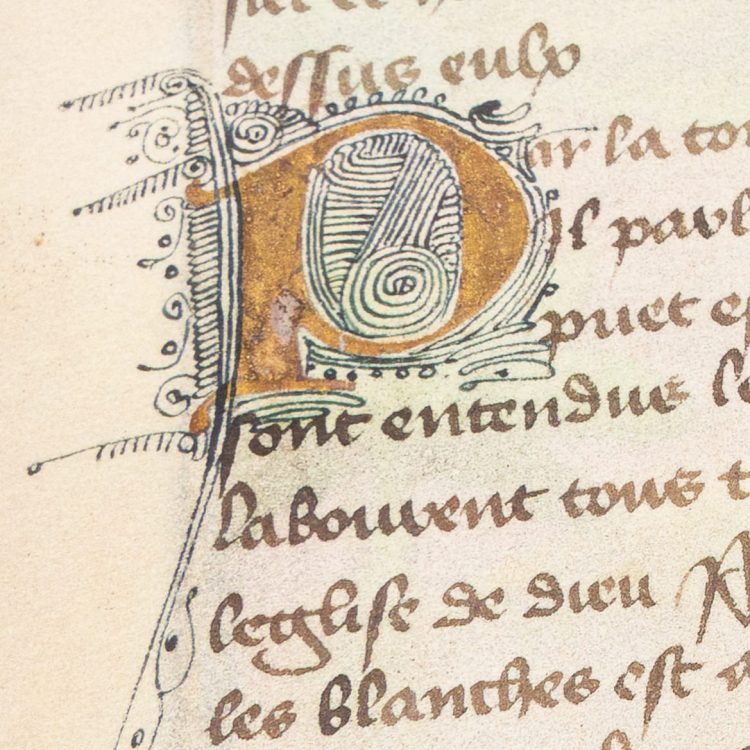 dessus eulx
Par la tor
Il parl
puet es
sont entendue le
labourent tous t
leglise de dieu P
les blanches est a